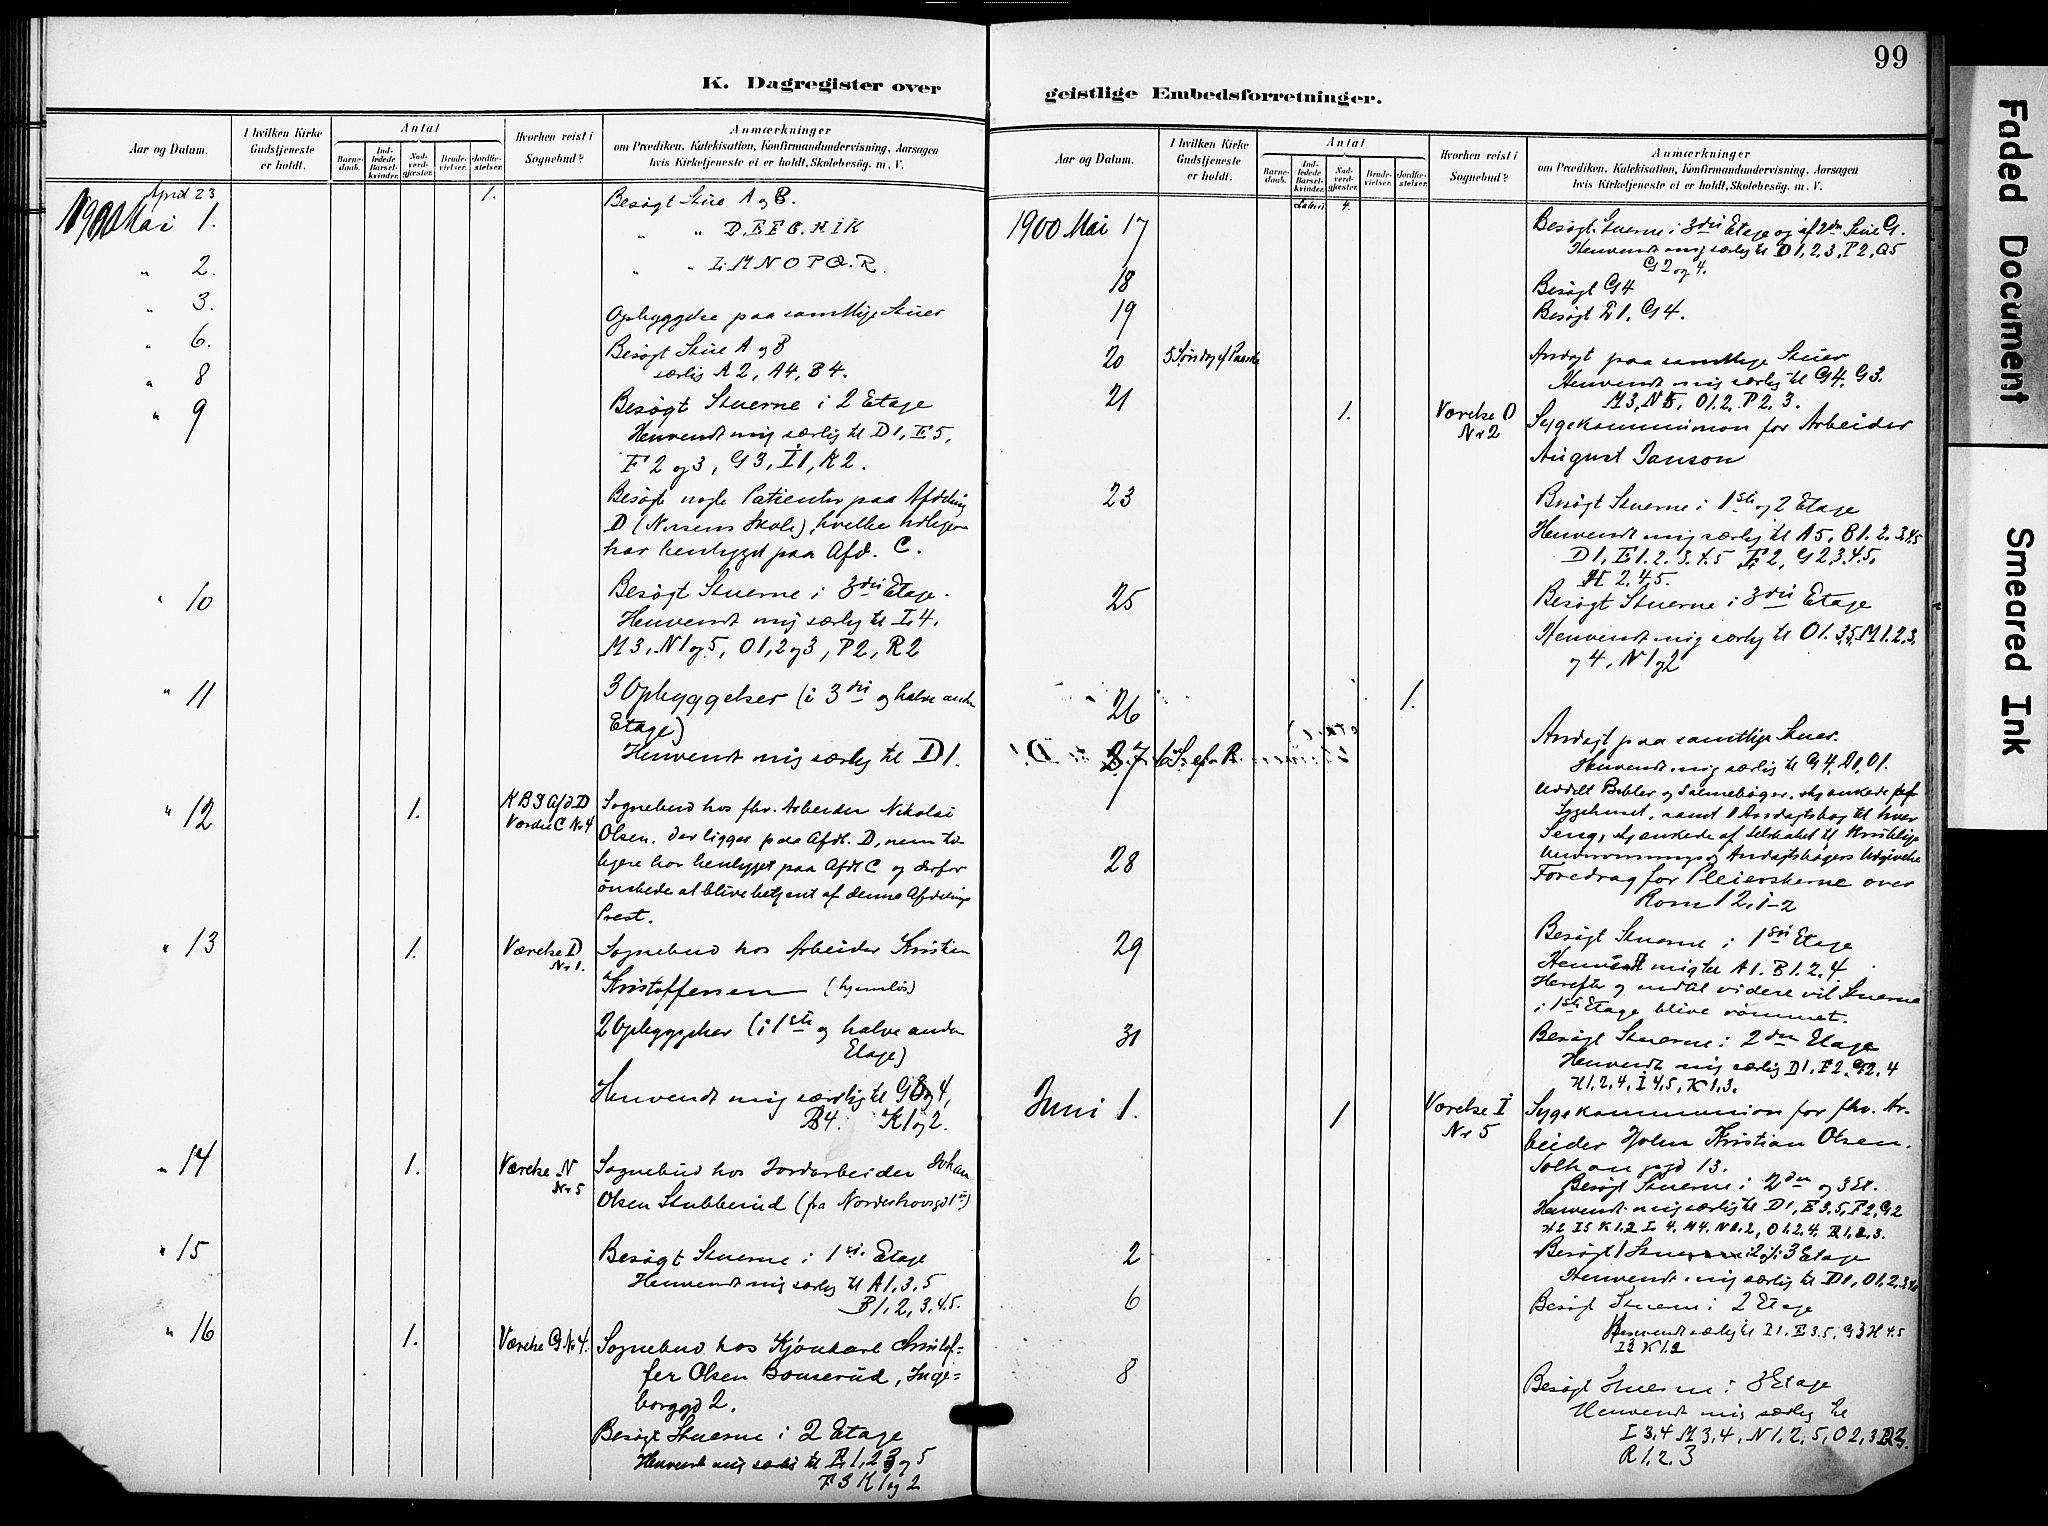 99
K. Dagregister over
geistlige Embedsforretninger.
Faded Document
Smeared Ink
Aar og Datum.
I hvilken Kirke
Gudstjeneste
er holdt.
Antal
Barne-
daab.
Ind-
ledede
Barsel-
kvinder.
Nad-
verd-
gjester.
Brude-
vielser.
Jordfæ-
stelser.
Hvorhen reist i
Sognebud?
Anmærkninger
om Prædiken, Katekisation, Konfirmandundervisning, Aarsagen
hvis Kirketjeneste ei er holdt, Skolebesøg. m. V.
April 23 1. Besøgt Stue A og B.
1900 Mai 1. " " D. E F G. H I K
" 2. " " L. M N O P Q. R.
" 3. Opbyggelse paa samtlige Stuer
" 6. Besøgt Stue A og B
særlig A 2, A4, B 4.
" 8
" 9 Besøgt Stuerne i 2 Etage
Henvendt mig særlig til D1, E5,
F 2 og 3, G 3, I 1, K 2.
Besøgt nogle Patienter paa Afdeling
D ( Skole), hvilke tidligere
har henligget paa Afd. C.
" 10 Besøgt Stuerne i 3die Etage.
Henvendt mig særlig til L 4.
M 3, N 1 og 5, O 1, 2 og 3, P 2, R 2
" 11 3 Opbyggelser (i 3die og halve anden
Etage)
Henvendt mig særlig til D 1.
" 12 1. K B S Afd D
Værelse C No 4
Sognebud hos fhv. Arbeider Nikolai
Olsen, der ligger paa Afd. D, men tid-
ligere har henligget paa Afd C og derfor
ønskede at blive betjent af denne Afdelings
Prest.
" 13 1. Værelse D
Nr 1.
Sognebud hos Arbeider Kristian
Kristoffersen (hjemløs)
2 Opbyggelser (i 1ste og halve anden
Etage)
Henvendt mig særlig til G 3 og 4,
B 4. K 1 og 2.
" 14 1. Værelse N
Nr 5
Sognebud hos Jordarbeider Johan
Olsen Stubberud (fra Norderhovsgd 1)
" 15 Besøgt Stuerne i 1ste Etage
Henvendt mig særlig til A 1, 3, 5
B 1, 2, 3, 4. 5.
" 16 1. Værelse G. No 4.
Sognebud hos Kjørekarl Christof-
fer Olsen Bonserud, Inge-
borggd 2.
Besøgt Stuerne i 2 Etage
Henvendt mig særlig til E 1, 2 3 og 5
F 3 K 1 og 2
Aar og Datum.
I hvilken Kirke
Gudstjeneste
er holdt.
Antal
Barne-
daab.
Ind-
ledede
Barsel-
kvinder.
Nad-
verd-
gjester.
Brude-
vielser.
Jordfæ-
stelser.
Hvorhen reist i
Sognebud?
Anmærkninger
om Prædiken, Katekisation, Konfirmandundervisning, Aarsagen
hvis Kirketjeneste ei er holdt, Skolebesøg. m. V.
Lateris 4.
1900 Mai 17 Besøgt Stuerne i 3die Etage og af 2den Stue G.
Henvendt mig særlig til D 1, 2, 3, P 2, Q 5
G 2 og 4.
18 Besøgt G 4
19 Besøgt D 1, G 4.
20 5 Søndag e/ Paaske Andagt paa samtlige Stuer
Henvendt mig særlig til G 4, G 3.
M 3, N 5, O 1. 2, P 2, 3.
21 1. Værelse D
Nr 2
Sygekommunion for Arbeider
August Janson
23 Besøgt Stuerne i 1ste og 2 Etage
Henvendt mig særlig til A 5, B 1. 2. 3. 4 5
D 1, E 1. 2. 3. 4. 5 F 2, G 2 3. 4. 5.
H 2. 4. 5.
25 Besøgt Stuerne i 3die Etage
Henvendt mig særlig til O 1. 3. 5, M 1. 2. 3.
og 4, N 1 og 2
26 1.
27 6 S. ef. P. Andagt paa samtlige Stuer.
Henvendt mig særlig til G 4, D 1, O 1.
Uddelt Bibler og Salmebøger, skjænkede
Sygehuset, samt 1 Andagtsbog til hver
Seng, skjænkede af Selskabet til Kristelige
Andagtsbøgers Udgivelse
28 Foredrag for Pleierskerne over
Rom 12, 1-2
29 Besøgt Stuerne i 1ste Etage
Henvendt mig til A 1. B 1. 2. 4.
Herefter og indtil videre vil Stuerne
i 1ste Etage blive rømmet.
31 Besøgt Stuerne i 2den Etage
Henvendt mig særlig D 1, F 2, G 2. 4
H 1, 2, 4, I 4. 5, K 1, 3.
Juni 1. 1 Værelse I
Nr 5
Sygekommunion for fhv. Ar-
beider Holm Kristian Olsen.
Solhaugsgd 13.
Besøgt Stuerne i 2den og 3 Et.
Henvendt mig særlig til D 1, E 3. 5, F 2, G 2
H 2 I 5 K 1. 2 L 4. M 4. N 1. 2, O 1. 2. 4. R 1. 2. 3.
2 Besøgt 1 Stue i 2 og i 3 Etage
Henvendt mig særlig til D 1, O 1, 2, 3
6 Besøgt Stuerne i 2 Etage
Henvendt særlig til D 1, E 3. 5, G 3 H 4. 5
I 3 K 1. 2
8 Besøgt Stuerne i 3 Etage
Henvendt mig særlig til
L 3, 4 M 3, 4, N 1, 2, 5, O 2, 3 P 2 3.
R 1. 2. 3